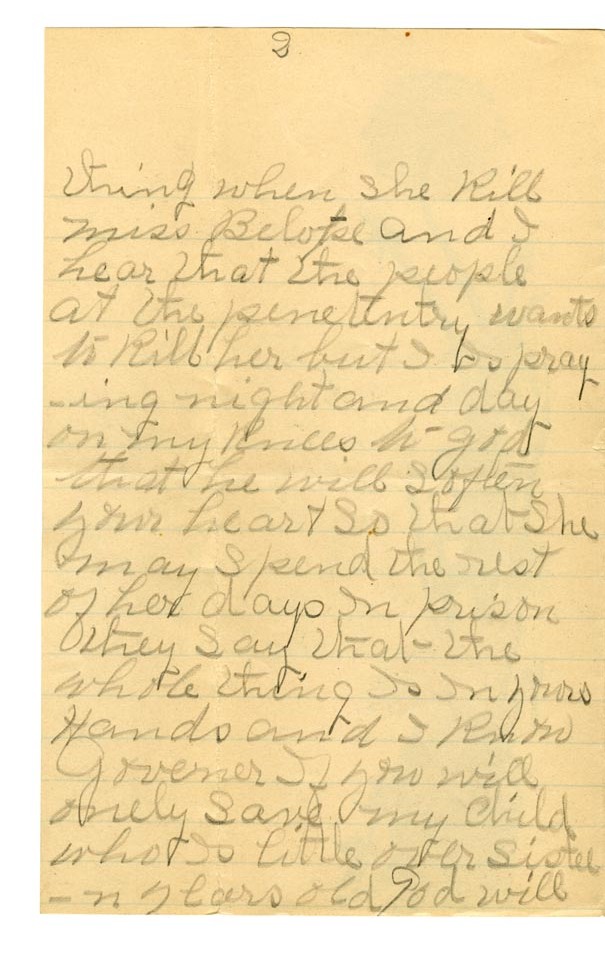 2
thing when she Kill
miss Belote and I
hear that the people
at the penetentry wants
to Kill her but I Is pray
-ing night and day
on my Knees to god
that he will soften
your heart So that She
may Spend the rest
of her days In prison
they Say that the
whole thing Is In yours
Hands and I Know
Governer If you will
onely Save my child
who Is little over Sixtee
-n years old God will